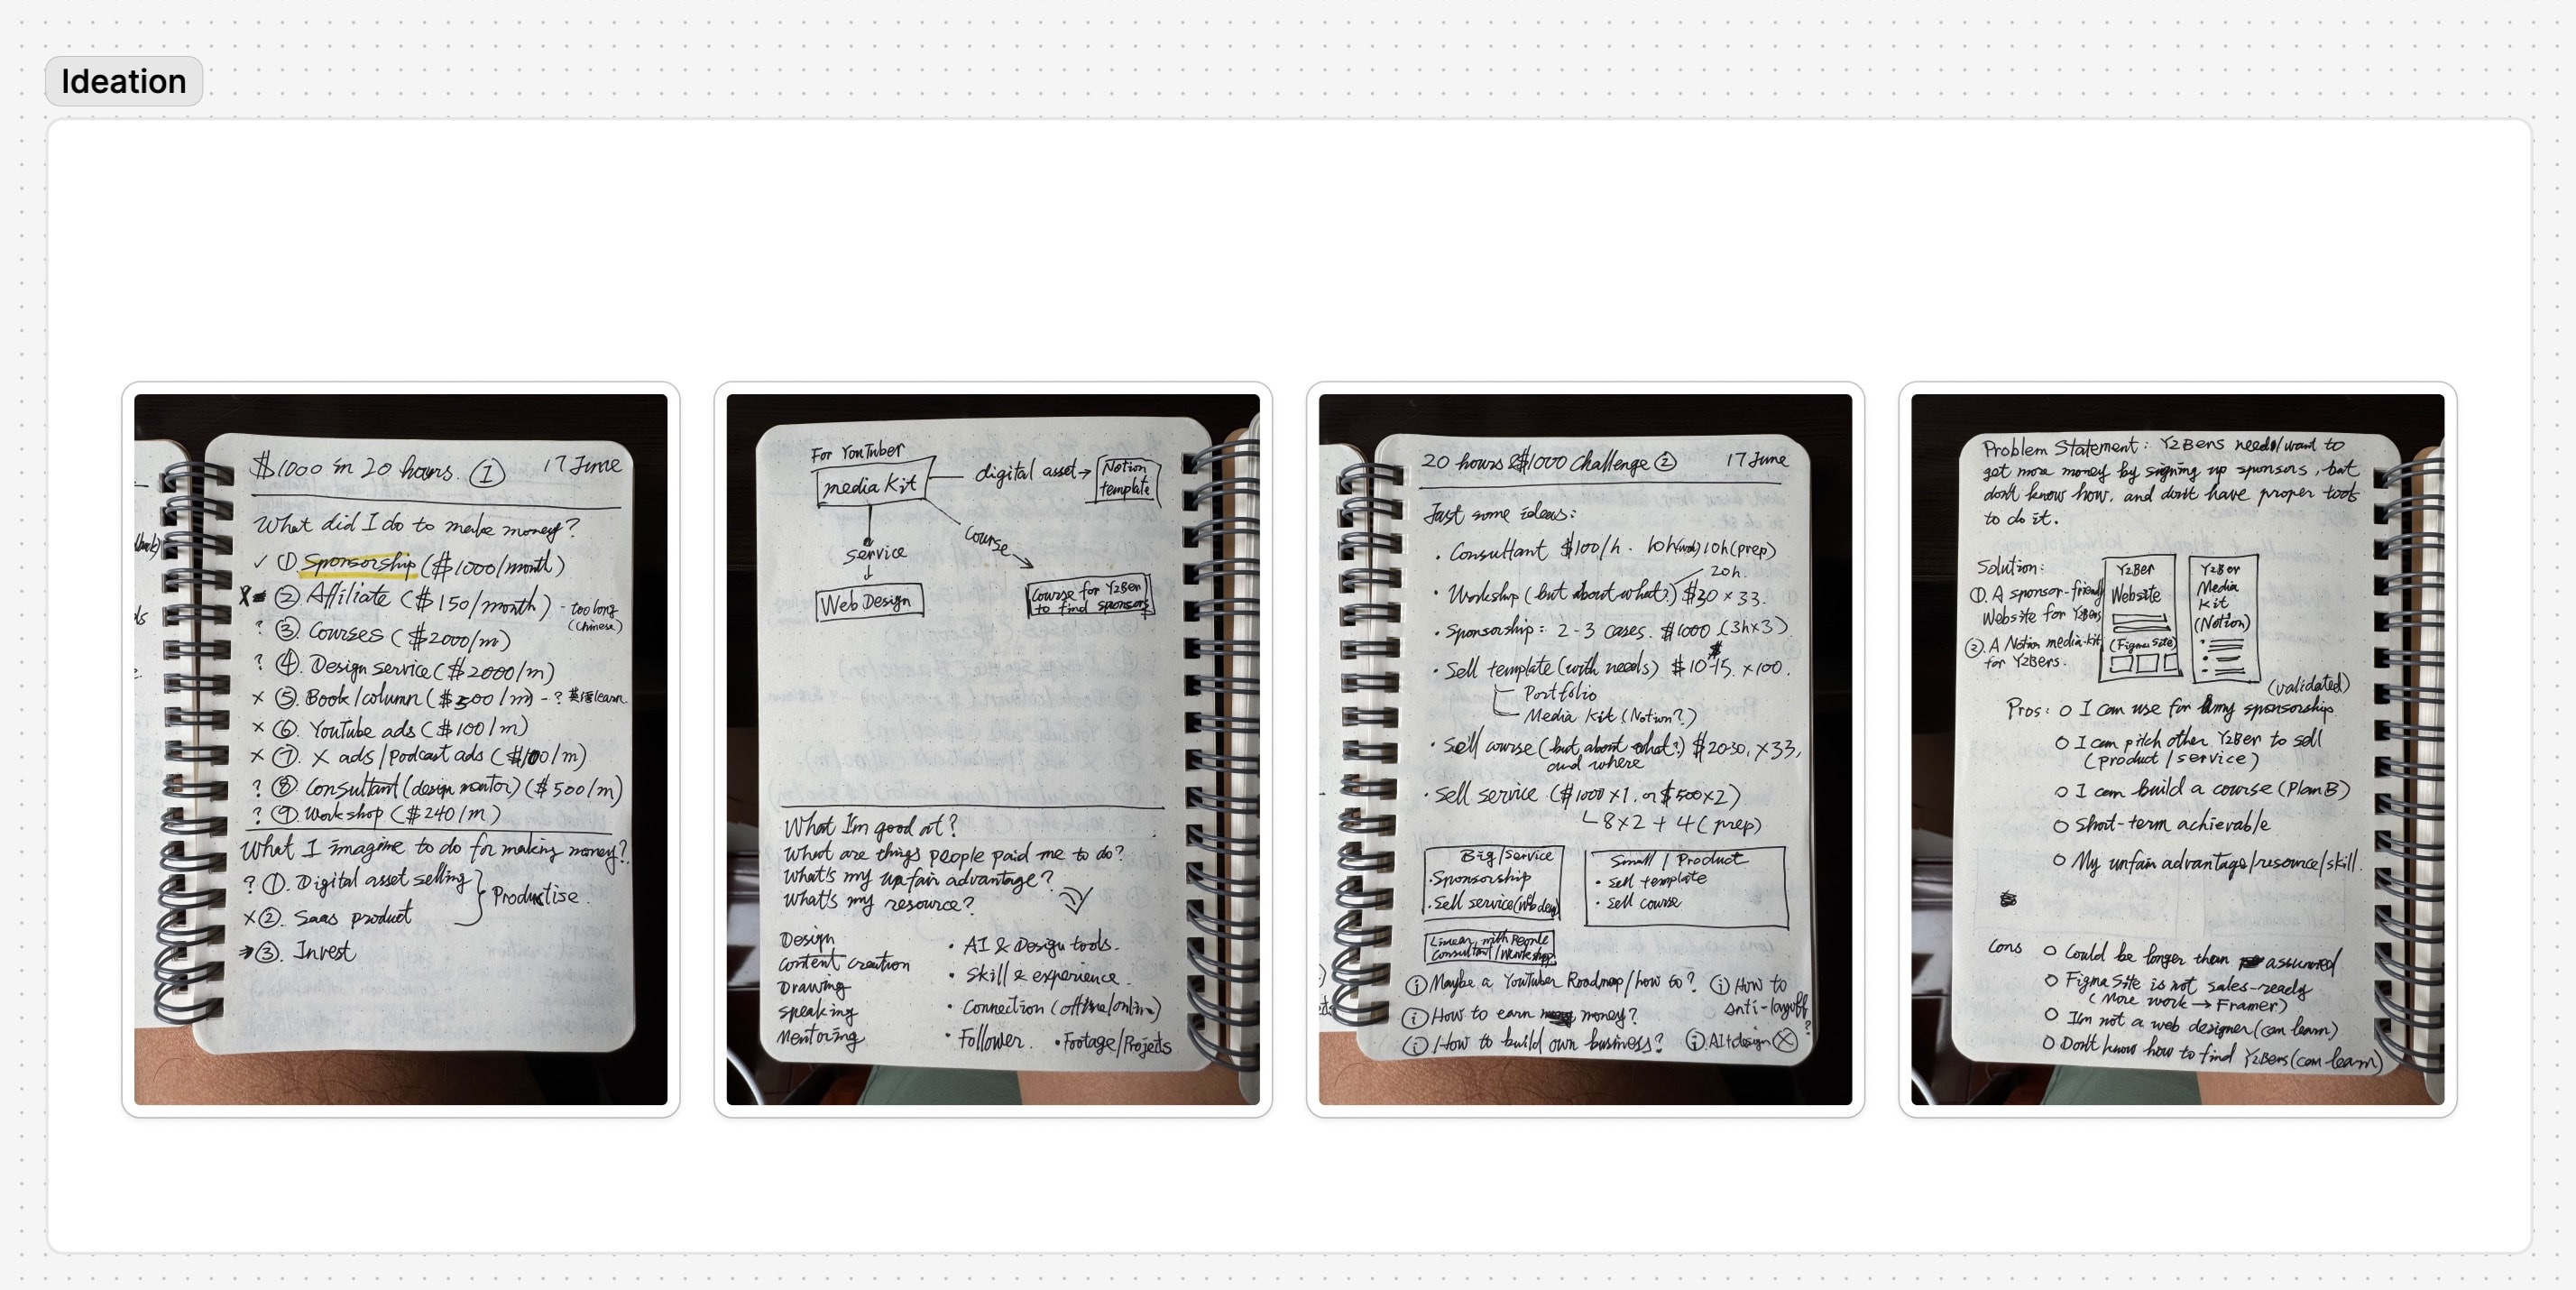 Ideation
$1000 in 20 hours. ① 17 June
What did I do to make money?
✓ ① Sponsorship ($1000/month)
X ② Affiliate ($150/month) - too long
(Chinese)
? ③. Courses ($2000/m)
? ④. Design service ($2000/m)
× ⑤. Book/column ($500/m) - ? 英语 learn
× ⑥. YouTube ads ($100/m)
× ⑦. X ads/Podcast ads ($100/m)
? ⑧. Consultant (design mentor) ($500/m)
? ⑨. Workshop ($240/m)
What I imagine to do for making money?
? ①. Digital asset selling
×②. Saas product
Productise.
③. Invest
For YouTuber
media Kit
digital asset→
Notion
template
service
↓
Web Design
course
Course for Y2Ber
to find sponsors
What I'm good at?
What are things people paid me to do?
What's my unfair advantage?
What's my resource?
Design
Content creation
Drawing
Speaking
Mentoring
• AI & Design tools.
• Skill & experience.
• Connection (offline/online)
• Follower. • Footage/Projects
20 hours & $1000 Challenge ② 17 June
Just some ideas:
• Consultant $100/h. 10h 10h(prep)
20h.
• Workshop (but about what?) $30 × 33.
• Sponsorship: 2-3 cases. $1000 (3h×3)
• Sell template (with needs) $10-$15. ×100.
Portfolio
Media Kit (Notion?)
• Sell course (but about what?) $20-30, ×33,
and where
• Sell service ($1000×1. or $500×2)
8×2 + 4(prep)
Big/Service
• Sponsorship
• Sell service (web des)
Small / Product
• Sell template
• Sell course
Linear, with People
Consultant/Workshop
ⓘ Maybe a YouTuber Roadmap/how to? ⓘ How to
Anti-layoff?
ⓘ How to earn money?
ⓘ How to build own business? ⓘ AI+design ⓧ
Problem Statement: Y2Bers need/want to
get more money by signing up sponsors, but
don't know how, and don't have proper tools
to do it.
Solution:
①. A sponsor-friendly
Website for Y2Bers
②. A Notion media-kit
for Y2Bers.
Y2Ber
Website
(Figma Site)
Y2Ber
Media
Kit
(Notion)
(validated)
Pros: ○ I can use for my sponsorship
○ I can pitch other Y2Ber to sell
(product/service)
○ I can build a course (Plan B)
○ Short-term achievable
○ My unfair advantage/resource/skill.
Cons ○ Could be longer than assumed
○ Figma Site is not sales-ready
(More work → Framer)
○ I'm not a web designer (can learn)
○ Don't know how to find Y2Bers (can learn)